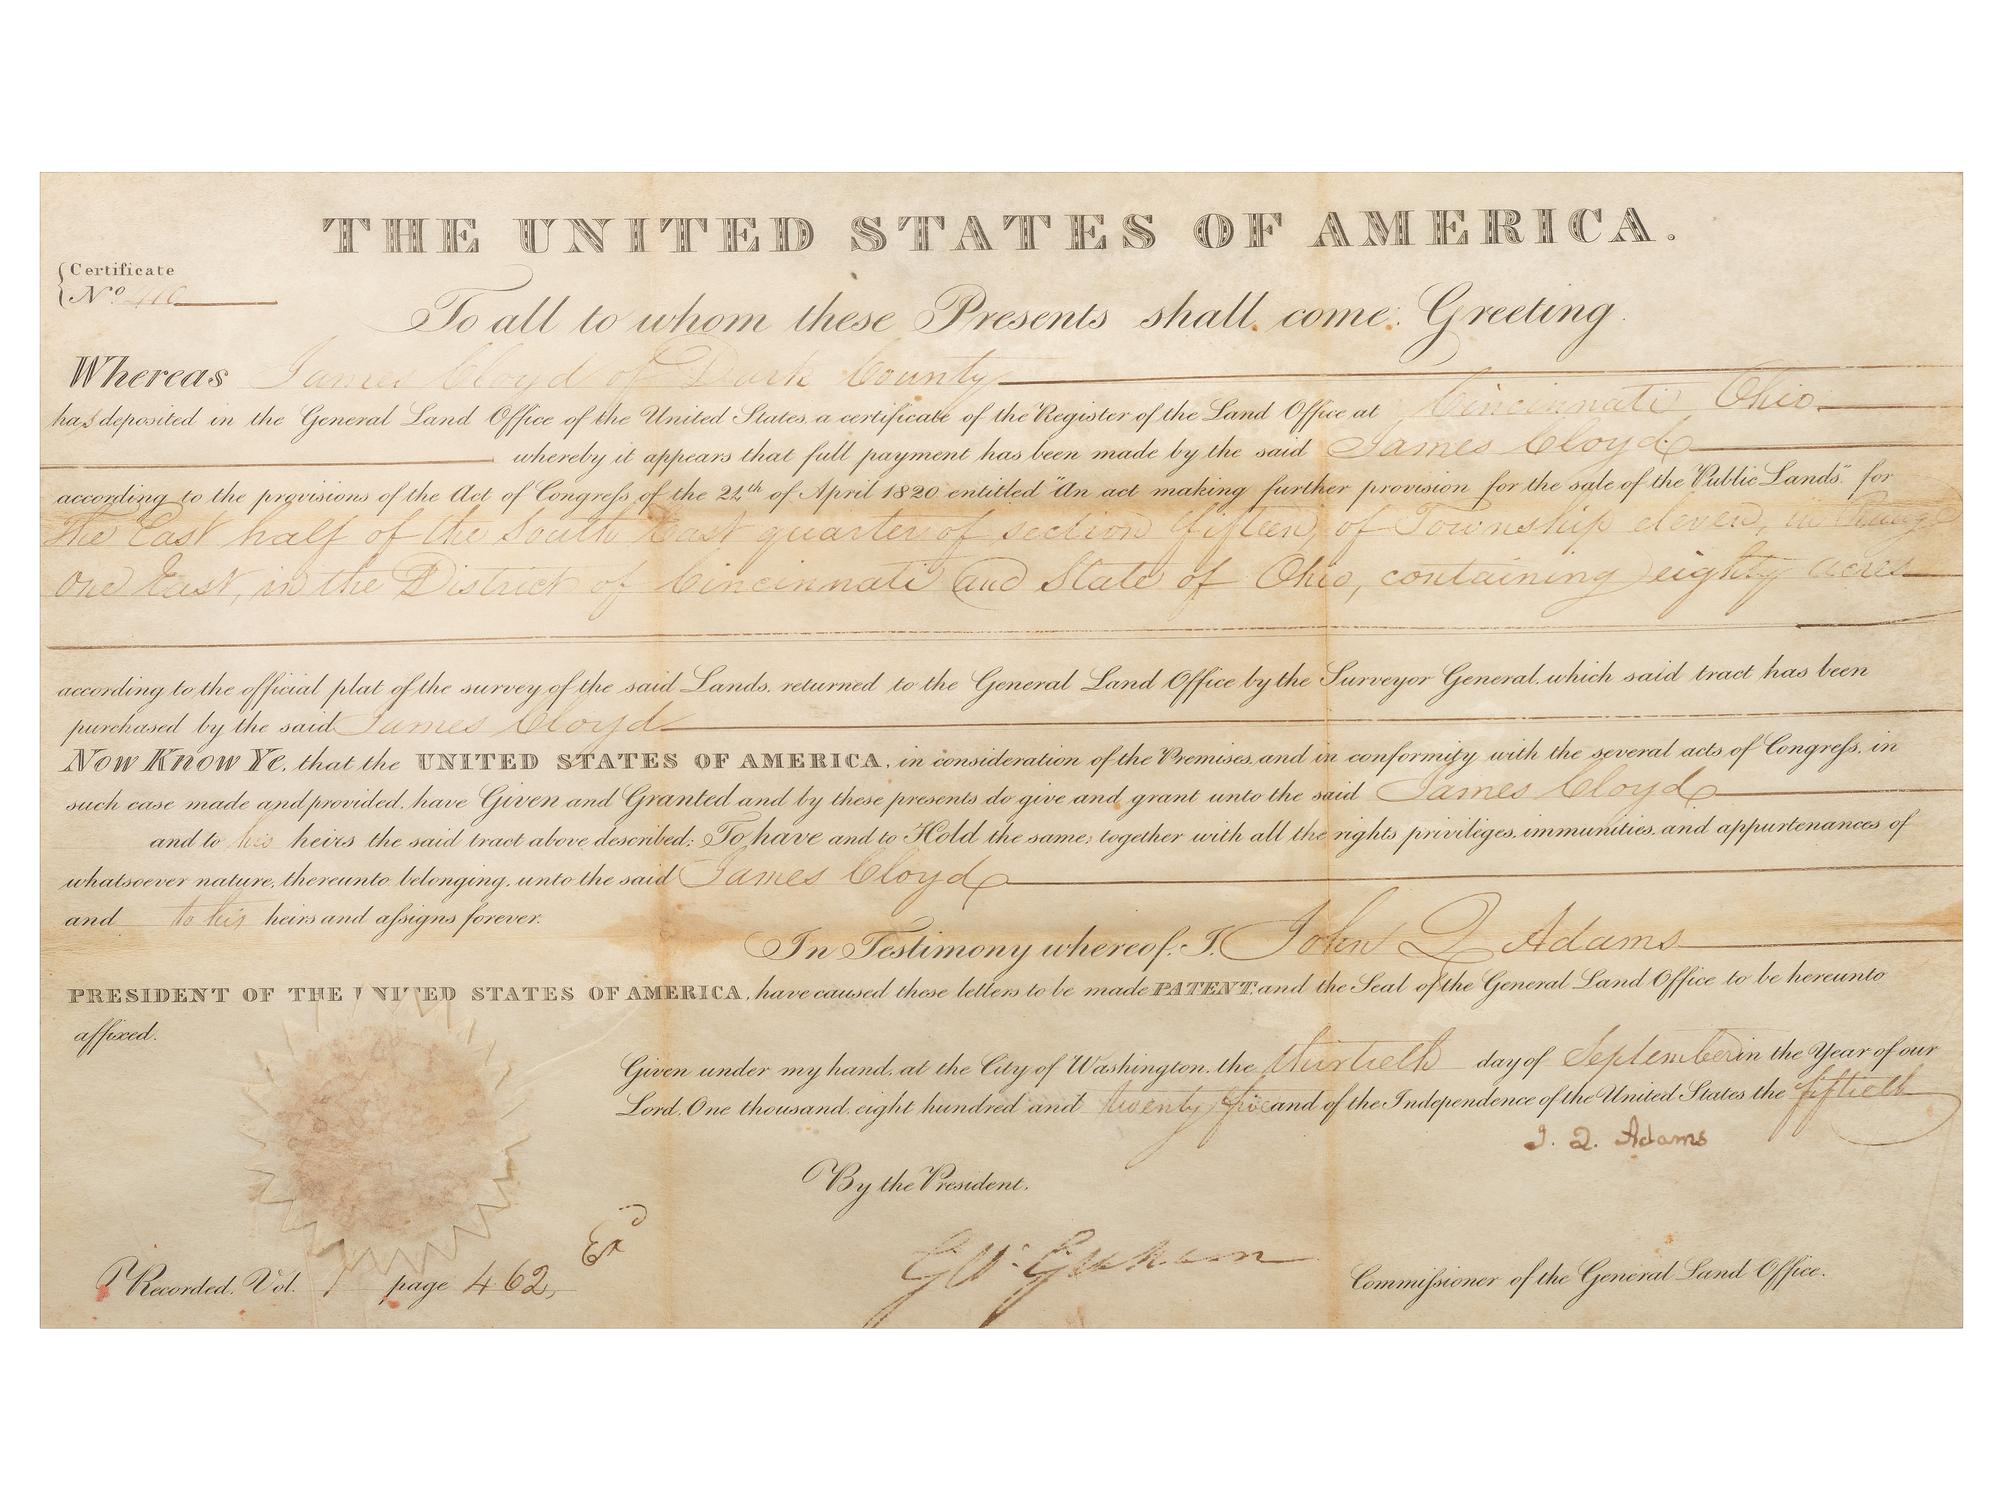 THE UNITED STATES OF AMERICA.
Certificate
No. 410
To all to whom these Presents shall come, Greeting.
Whereas James Cloyd of Dark County
has deposited in the General Land Office of the United States, a certificate of the Register of the Land Office at Cincinnati Ohio
whereby it appears that full payment has been made by the said James Cloyd
according to the provisions of the Act of Congress of the 24th of April 1820 entitled "An act making further provision for the sale of the Public Lands" for
The East half of the South East quarter of section fifteen, of Township eleven, in Range
One East, in the District of Cincinnati and State of Ohio, containing eighty acres
according to the official plat of the survey of the said Lands, returned to the General Land Office by the Surveyor General, which said tract has been
purchased by the said James Cloyd
Now Know Ye, that the UNITED STATES OF AMERICA, in consideration of the Premises, and in conformity with the several acts of Congress, in
such case made and provided, have Given and Granted and by these presents do give and grant unto the said James Cloyd
and to his heirs the said tract above described: To have and to Hold the same, together with all the rights, privileges, immunities, and appurtenances of
whatsoever nature, thereunto belonging, unto the said James Cloyd
and to his heirs and assigns forever.
In Testimony whereof, I, John Q Adams
PRESIDENT OF THE UNITED STATES OF AMERICA, have caused these letters to be made PATENT, and the Seal of the General Land Office to be hereunto
affixed.
Given under my hand, at the City of Washington, the thirtieth day of September in the Year of our
Lord, One thousand, eight hundred and twenty five and of the Independence of the United States the fiftieth
J. Q. Adams
By the President,
Recorded, Vol. 1 page 462,
Exd
G W. Graham
Commissioner of the General Land Office.